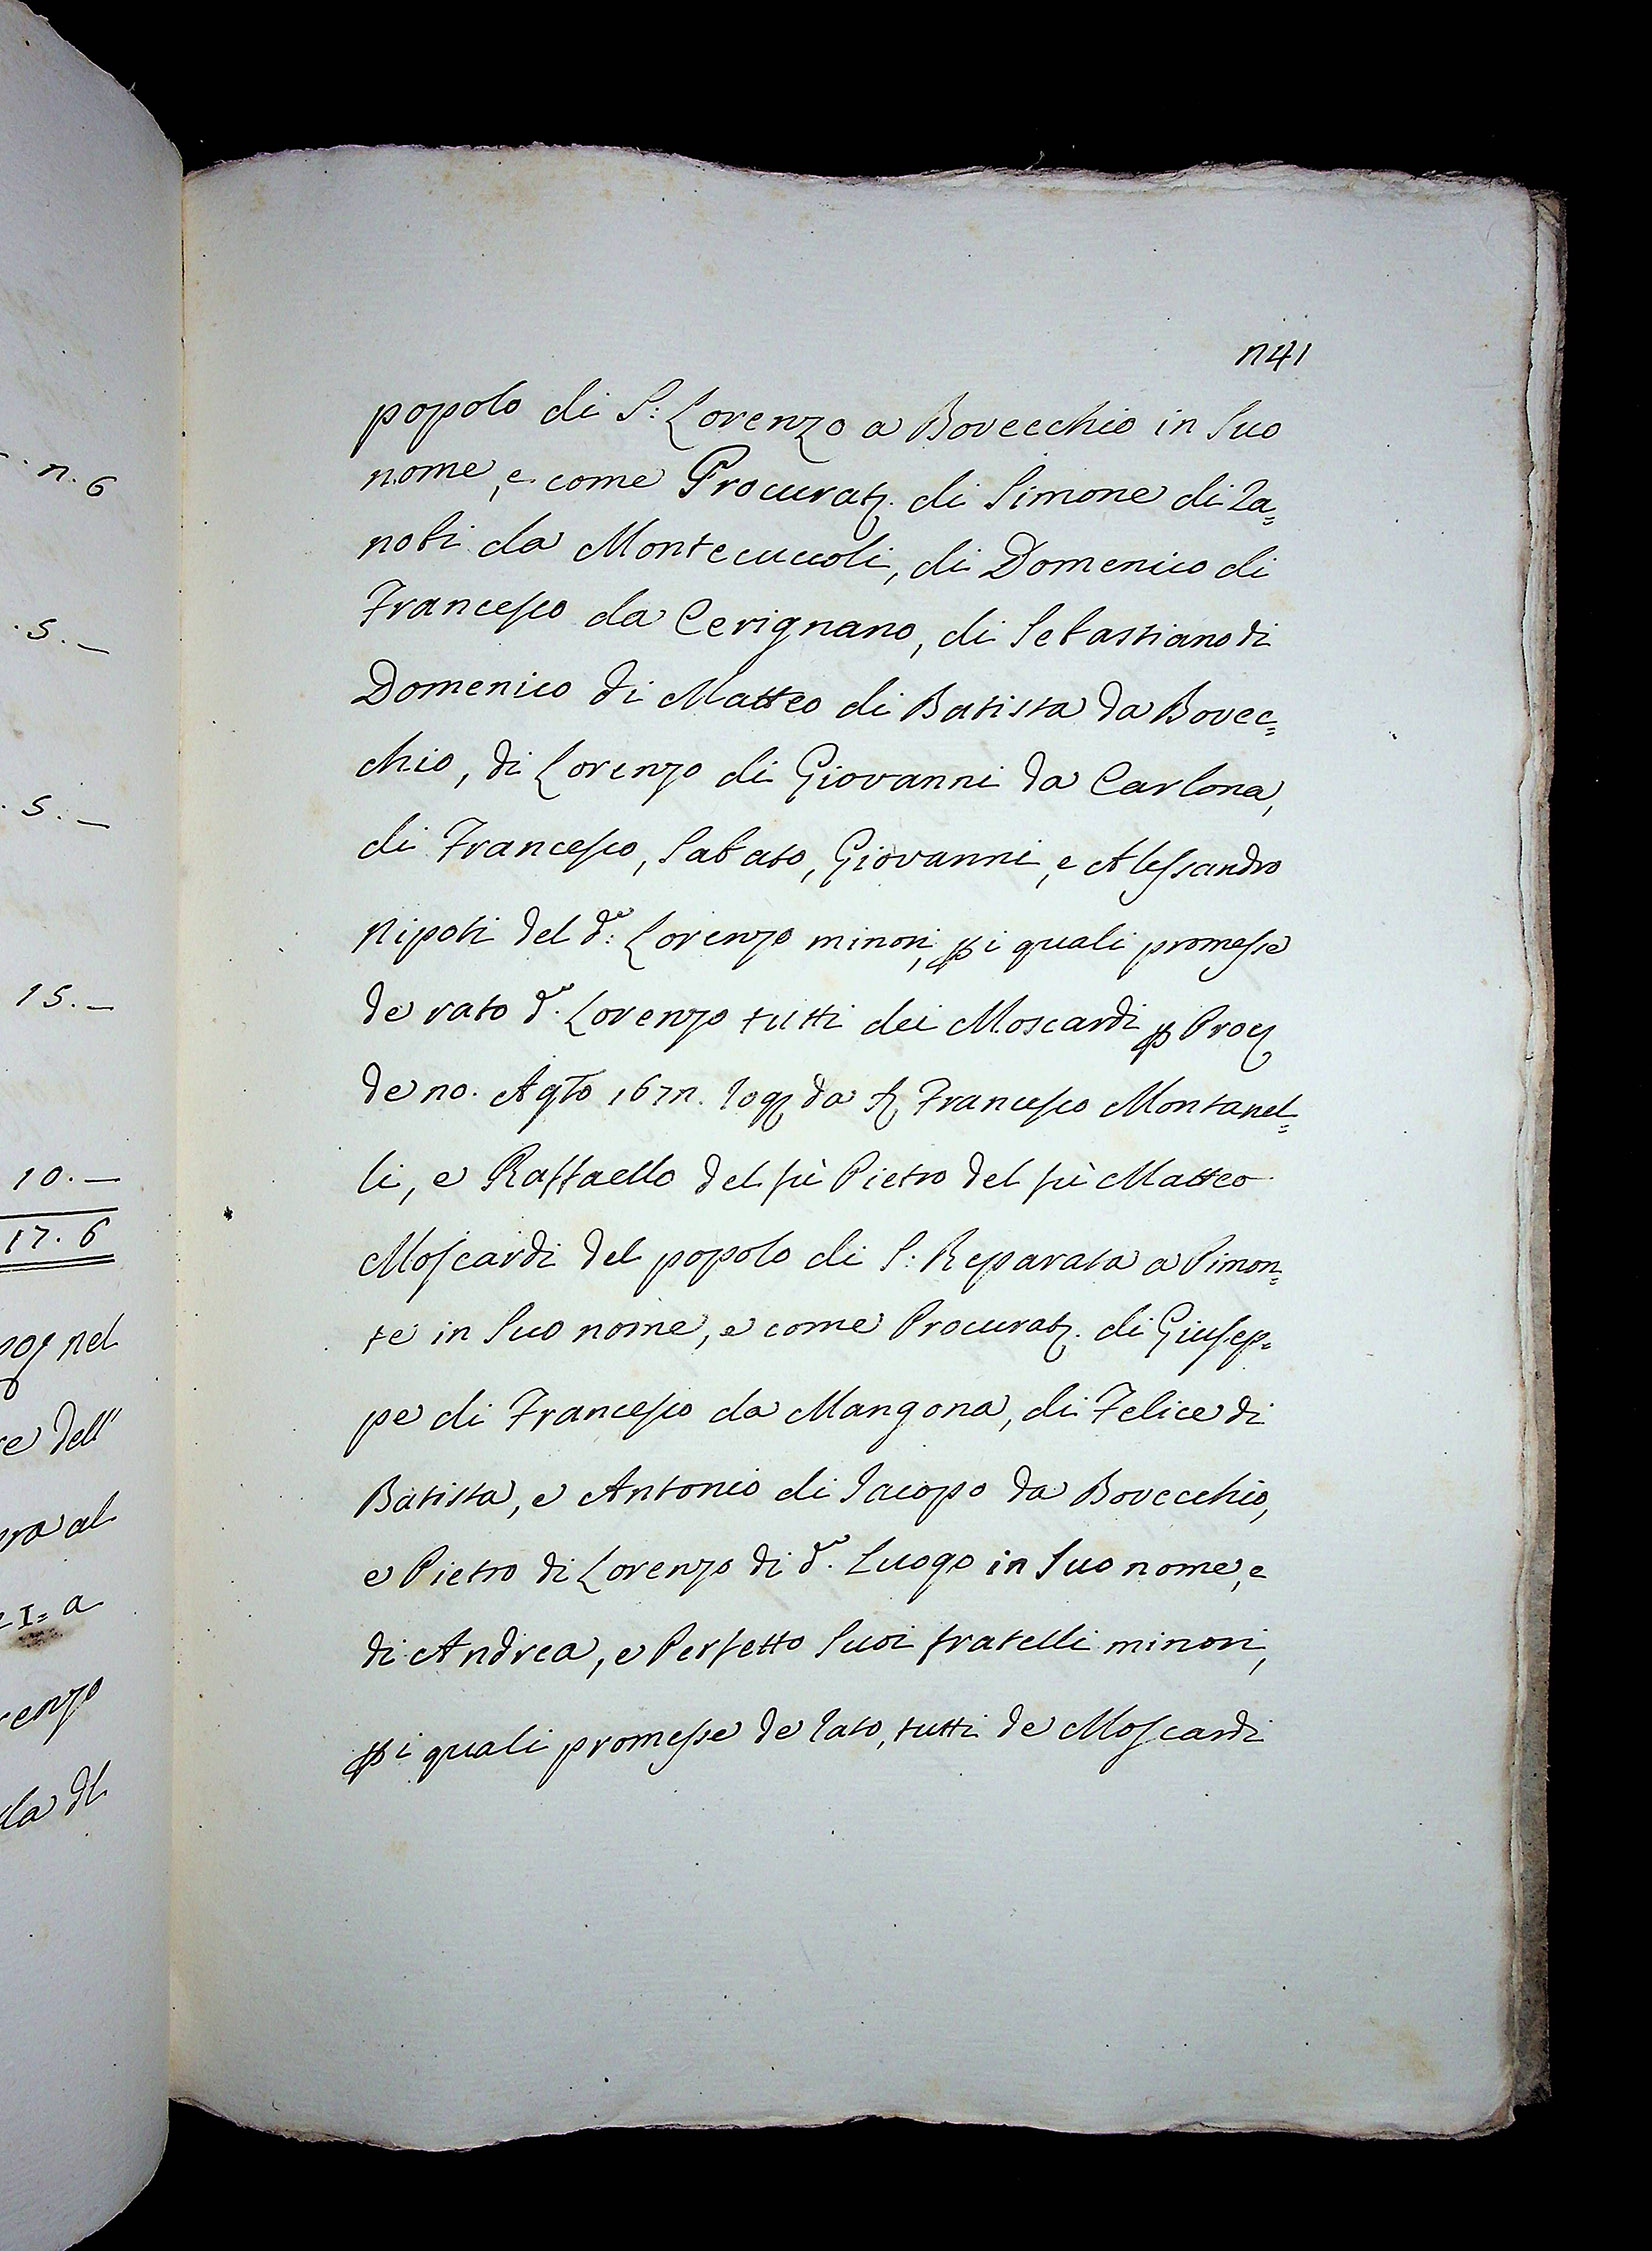 n. 6
. 5. —
. 5. —
15. —
10. —
17. 6
nel
dell'
al
a
n41
popolo di S: Lorenzo a Bovecchio in Suo
nome, e come Procurat. di Simone di Za=
nobi da Montecuccoli, di Domenico di
Francesco da Cerignano, di Sebastiano di
Domenico di Matteo di Batista da Bovec=
chio, di Lorenzo di Giovanni da Carlona,
di Francesco, Sabato, Giovanni, e Alessandro
Nipoti del d.º: Lorenzo minori, p i quali promesse
de rato d.º Lorenzo tutti dei Moscardi p Proc
de no. Agto 167n. rog da S Francesco Montanel=
li, e Raffaello del fù Pietro del fù Matteo
Moscardi del popolo di S: Reparata a Pimon=
te in Suo nome, e come Procurat. di Giusep=
pe di Francesco da Mangona, di Felice di
Batista, e Antonio di Iacopo da Bovecchio,
e Pietro di Lorenzo di d.º Luogo in Suo nome, e
di Andrea, e Perfetto Suoi fratelli minori,
p i quali promesse de rato, tutti de Moscardi